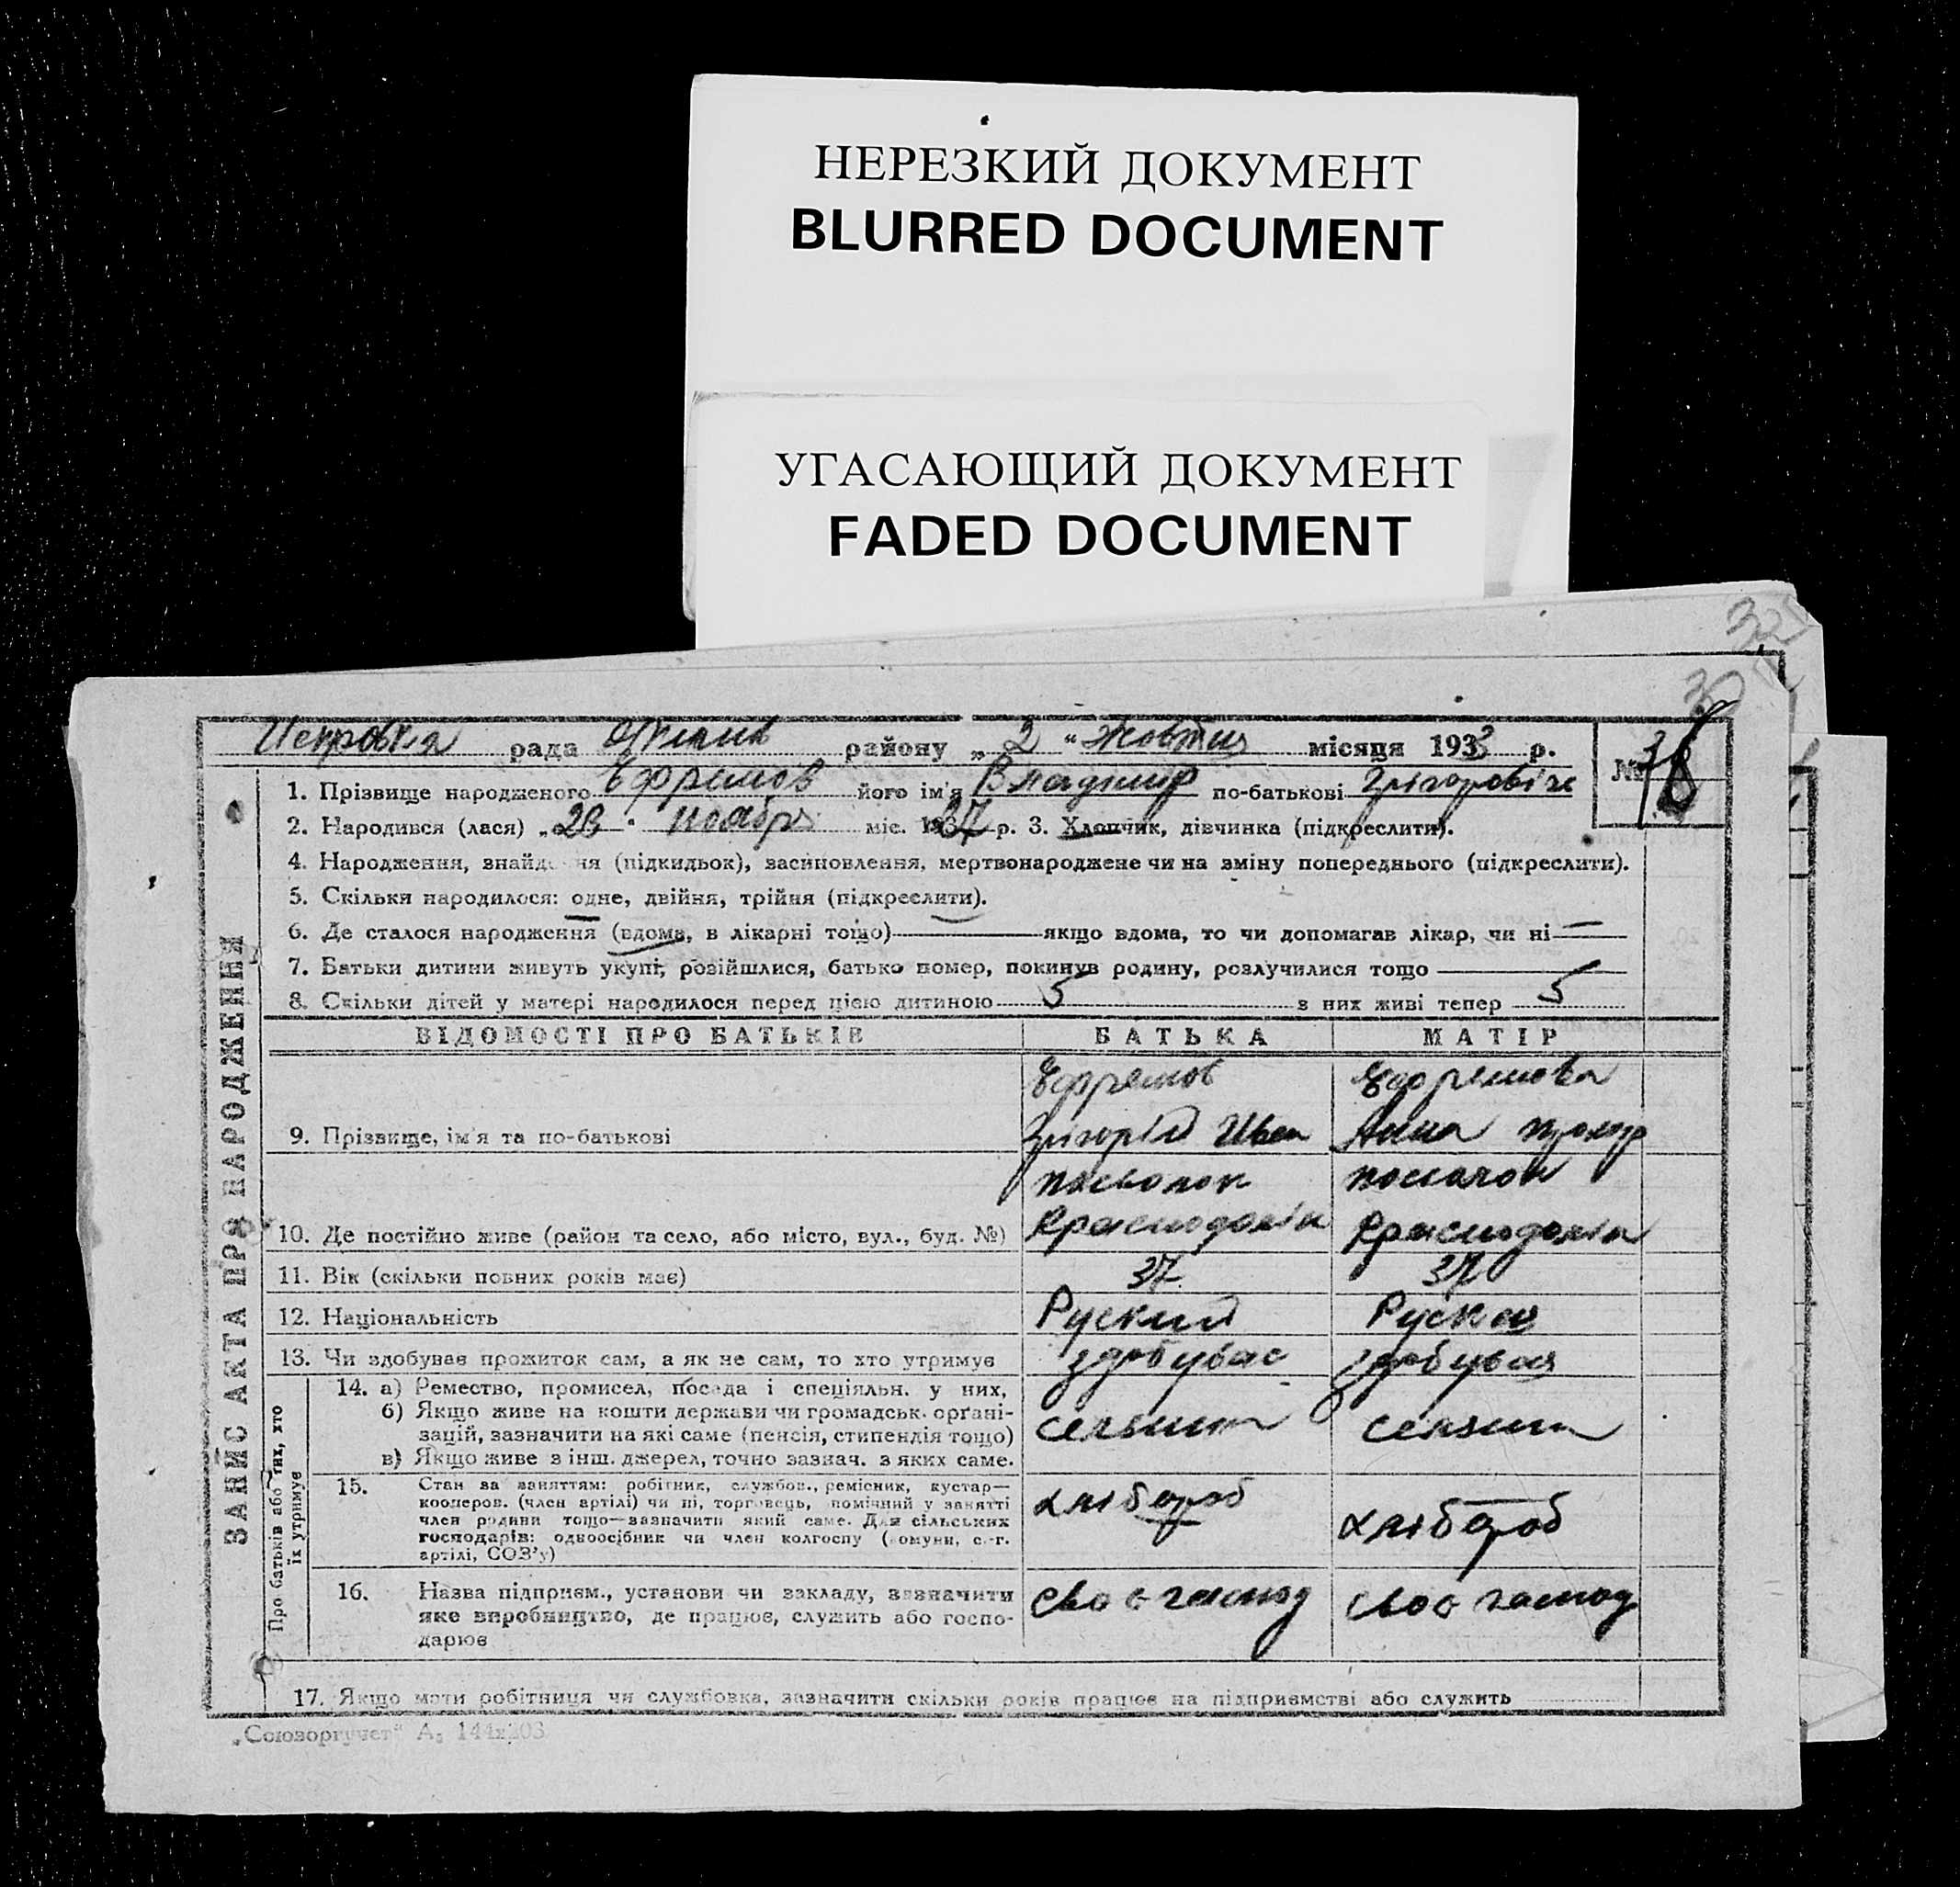 НЕРЕЗКИЙ ДОКУМЕНТ
BLURRED DOCUMENT
УГАСАЮЩИЙ ДОКУМЕНТ
FADED DOCUMENT
рада району „ 2 “ Жовтня місяця 1933 р.
№
1. Прізвище народженого Ефремов його ім'я Владимир по-батькові Грігоровіч
2. Народився (лася) „ ноября міс. р. 3. Хлопчик, дівчинка (підкреслити).
4. Народження, знайдення (підкидьок), засиновлення, мертвонароджене чи на зміну попереднього (підкреслити).
5. Скільки народилося: одне, двійня, трійня (підкреслити).
6. Де сталося народження (вдома, в лікарні тощо) — якщо вдома, то чи допомагав лікар, чи ні —
7. Батьки дитини живуть укупі, розійшлися, батько помер, покинув родину, розлучилися тощо —
8. Скільки дітей у матері народилося перед цією дитиною 5 з них живі тепер 5
ЗАПИС АКТА ПРО НАРОДЖЕННЯ
ВІДОМОСТІ ПРО БАТЬКІВ БАТЬКА МАТІР
Ефремов Ефремова
9. Прізвище, ім'я та по-батькові Грігорій Иван Анна
10. Де постійно живе (район та село, або місто, вул., буд. №)
11. Вік (скільки повних років має) 37 37
12. Національність Руский Руская
13. Чи здобуває прожиток сам, а як не сам, то хто утримує здобуває здобувая
Про батьків або тих, хто їх утримує
14. а) Ремество, промисел, посада і спеціяльн. у них,
б) Якщо живе на кошти держави чи громадськ. органі-
зацій, зазначити на які саме (пенсія, стипендія тощо)
в) Якщо живе з інш. джерел, точно зазнач. з яких саме.
15. Стан за заняттям: робітник, службов., ремісник, кустар—
кооперов. (член артілі) чи ні, торговець, помічний у занятті
член родини тощо—зазначити який саме. Для сільських
господарів: одноосібник чи член колгоспу (комуни, с.-г.
артілі, СОЗ'у)
хлібороб хлібороб
16. Назва підприєм., установи чи закладу, зазначити
яке виробництво, де працює, служить або госпо-
дарює
своє господ своє господ
17. Якщо мати робітниця чи службовка, зазначити скільки років працює на підприємстві або служить
„Союзоргучет“ А₅ 144х203